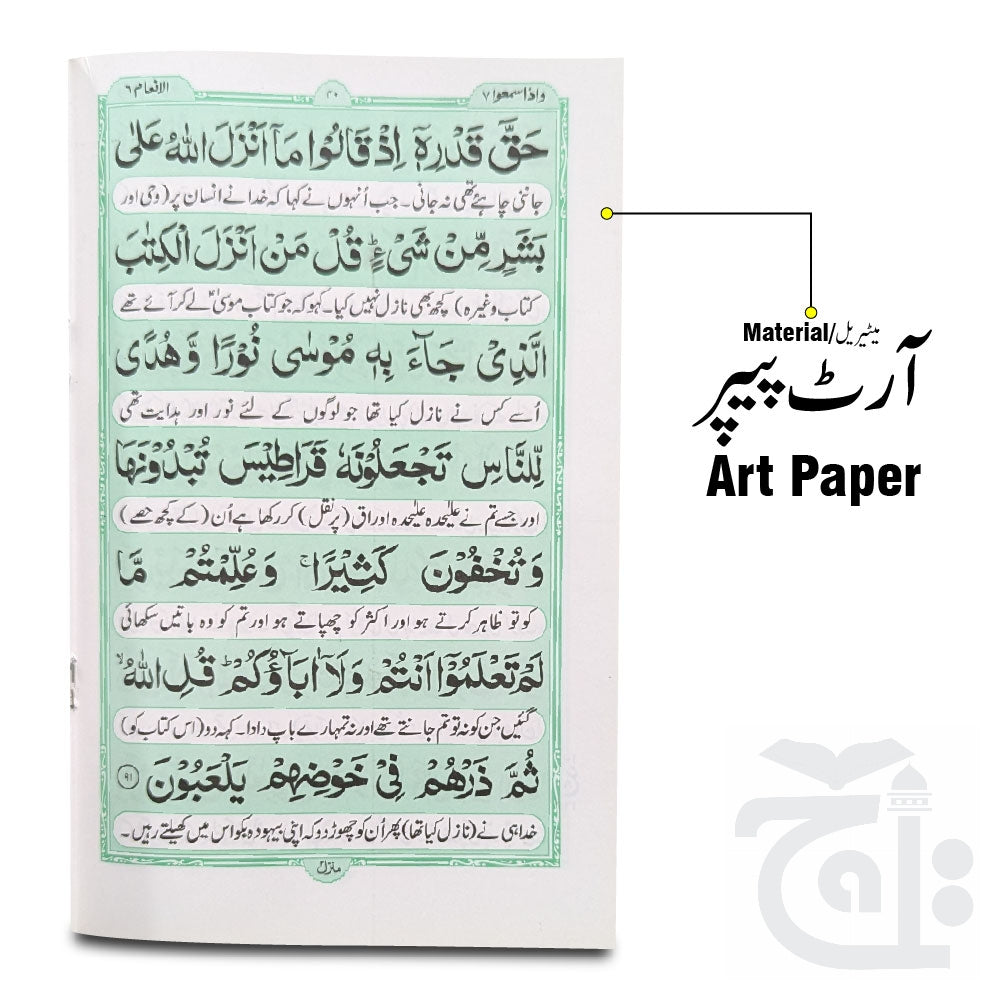 واذا سمعوا ۷
۲۰
الانعام ۶
حَقَّ قَدْرِهٖۤ اِذْ قَالُوْا مَاۤ اَنْزَلَ اللّٰهُ عَلٰى
جاننی چاہئے تھی نہ جانی۔ جب اُنہوں نے کہا کہ خدا نے انسان پر (وحی اور
بَشَرٍ مِّنْ شَیْءٍ ؕ قُلْ مَنْ اَنْزَلَ الْكِتٰبَ
کتاب وغیرہ) کچھ بھی نازل نہیں کیا۔ کہو کہ جو کتاب موسیٰؑ لے کر آئے تھے
الَّذِیْ جَآءَ بِهٖ مُوْسٰى نُوْرًا وَّ هُدًى
اُسے کس نے نازل کیا تھا جو لوگوں کے لئے نور اور ہدایت تھی
لِّلنَّاسِ تَجْعَلُوْنَهٗ قَرَاطِیْسَ تُبْدُوْنَهَا
اور جسے تم نے علیٰحدہ علیٰحدہ اوراق (پر نقل) کر رکھا ہے اُن (کے کچھ حصے)
وَ تُخْفُوْنَ كَثِیْرًا ۚ وَ عُلِّمْتُمْ مَّا
کو تو ظاہر کرتے ہو اور اکثر کو چھپاتے ہو اور تم کو وہ باتیں سکھائی
لَمْ تَعْلَمُوْۤا اَنْتُمْ وَ لَاۤ اٰبَآؤُكُمْ ؕ قُلِ اللّٰهُ ۙ
گئیں جن کو نہ تو تم جانتے تھے اور نہ تمہارے باپ دادا۔ کہہ دو (اس کتاب کو)
ثُمَّ ذَرْهُمْ فِیْ خَوْضِهِمْ یَلْعَبُوْنَ ﴿۹۱﴾
خدا ہی نے (نازل کیا تھا) پھر اُن کو چھوڑ دو کہ اپنی بیہودہ بکواس میں کھیلتے رہیں۔
Material/میٹیریل
آرٹ پیپر
Art Paper